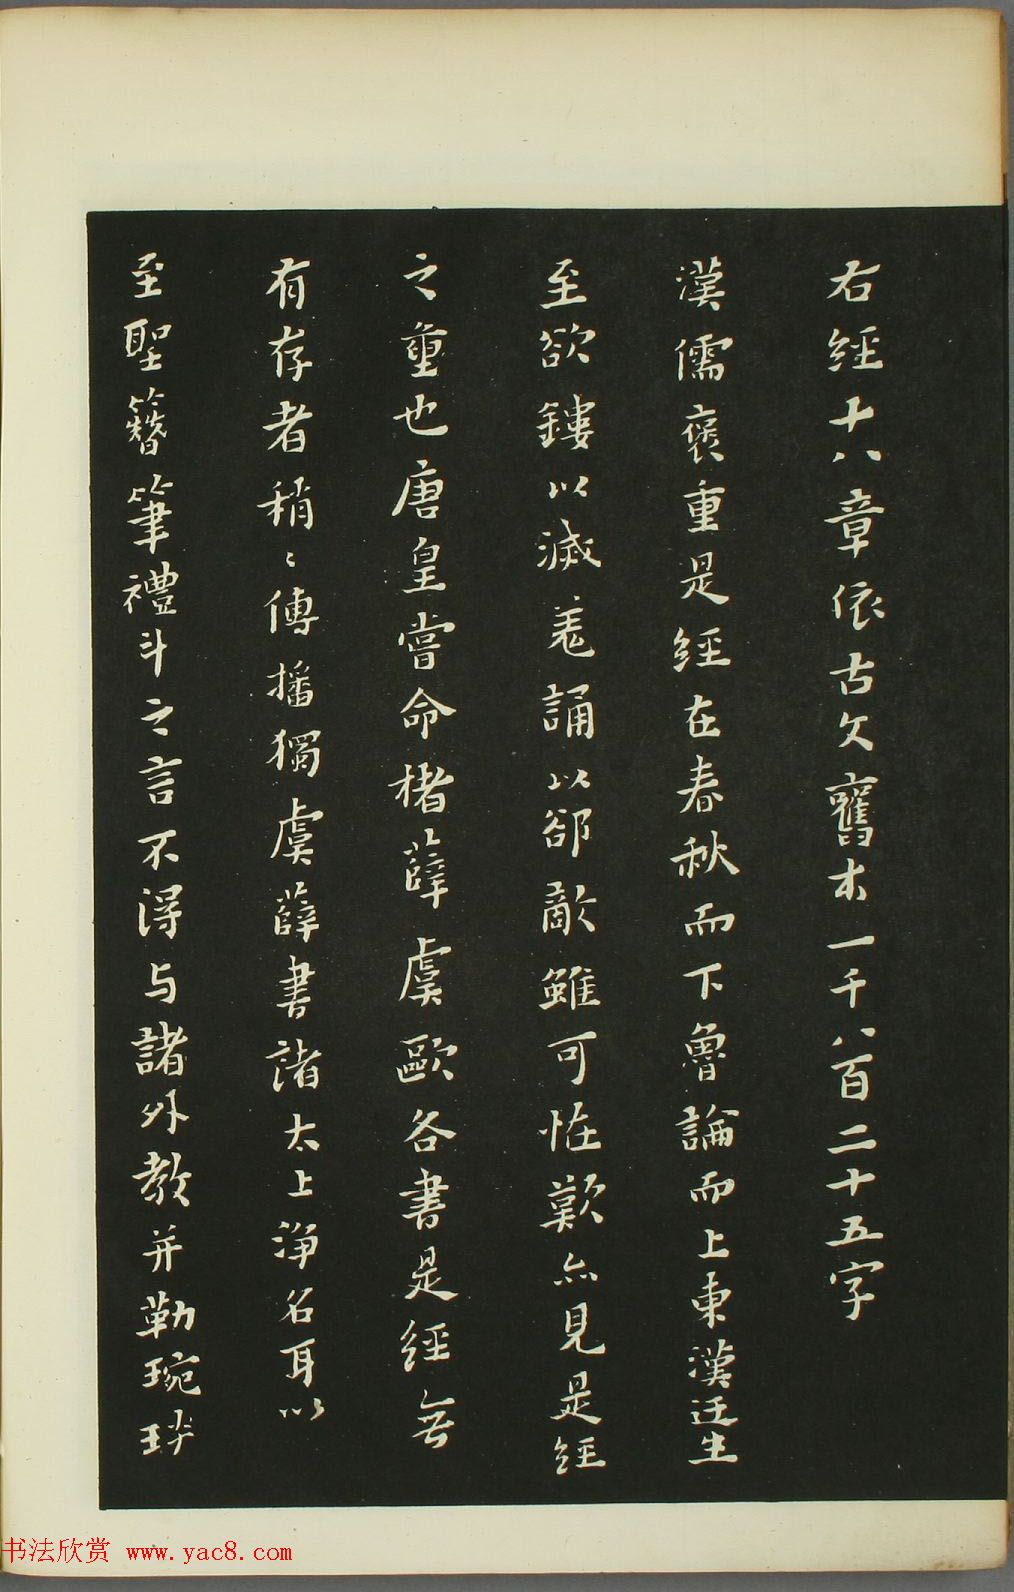 右經十八章依古文舊本一千八百二十五字
漢儒褒重是經在春秋而下魯論而上東漢迂生
至欲鏤以滅羌誦以郤敵雖可怪歎亦見是經
之重也唐皇嘗命褚薛虞歐各書是經無
有存者稍〻傳播獨虞薛書諸太上淨名耳以
至聖簪筆禮斗之言不得与諸外教并勒琬琰
书法欣赏 www.yac8.com